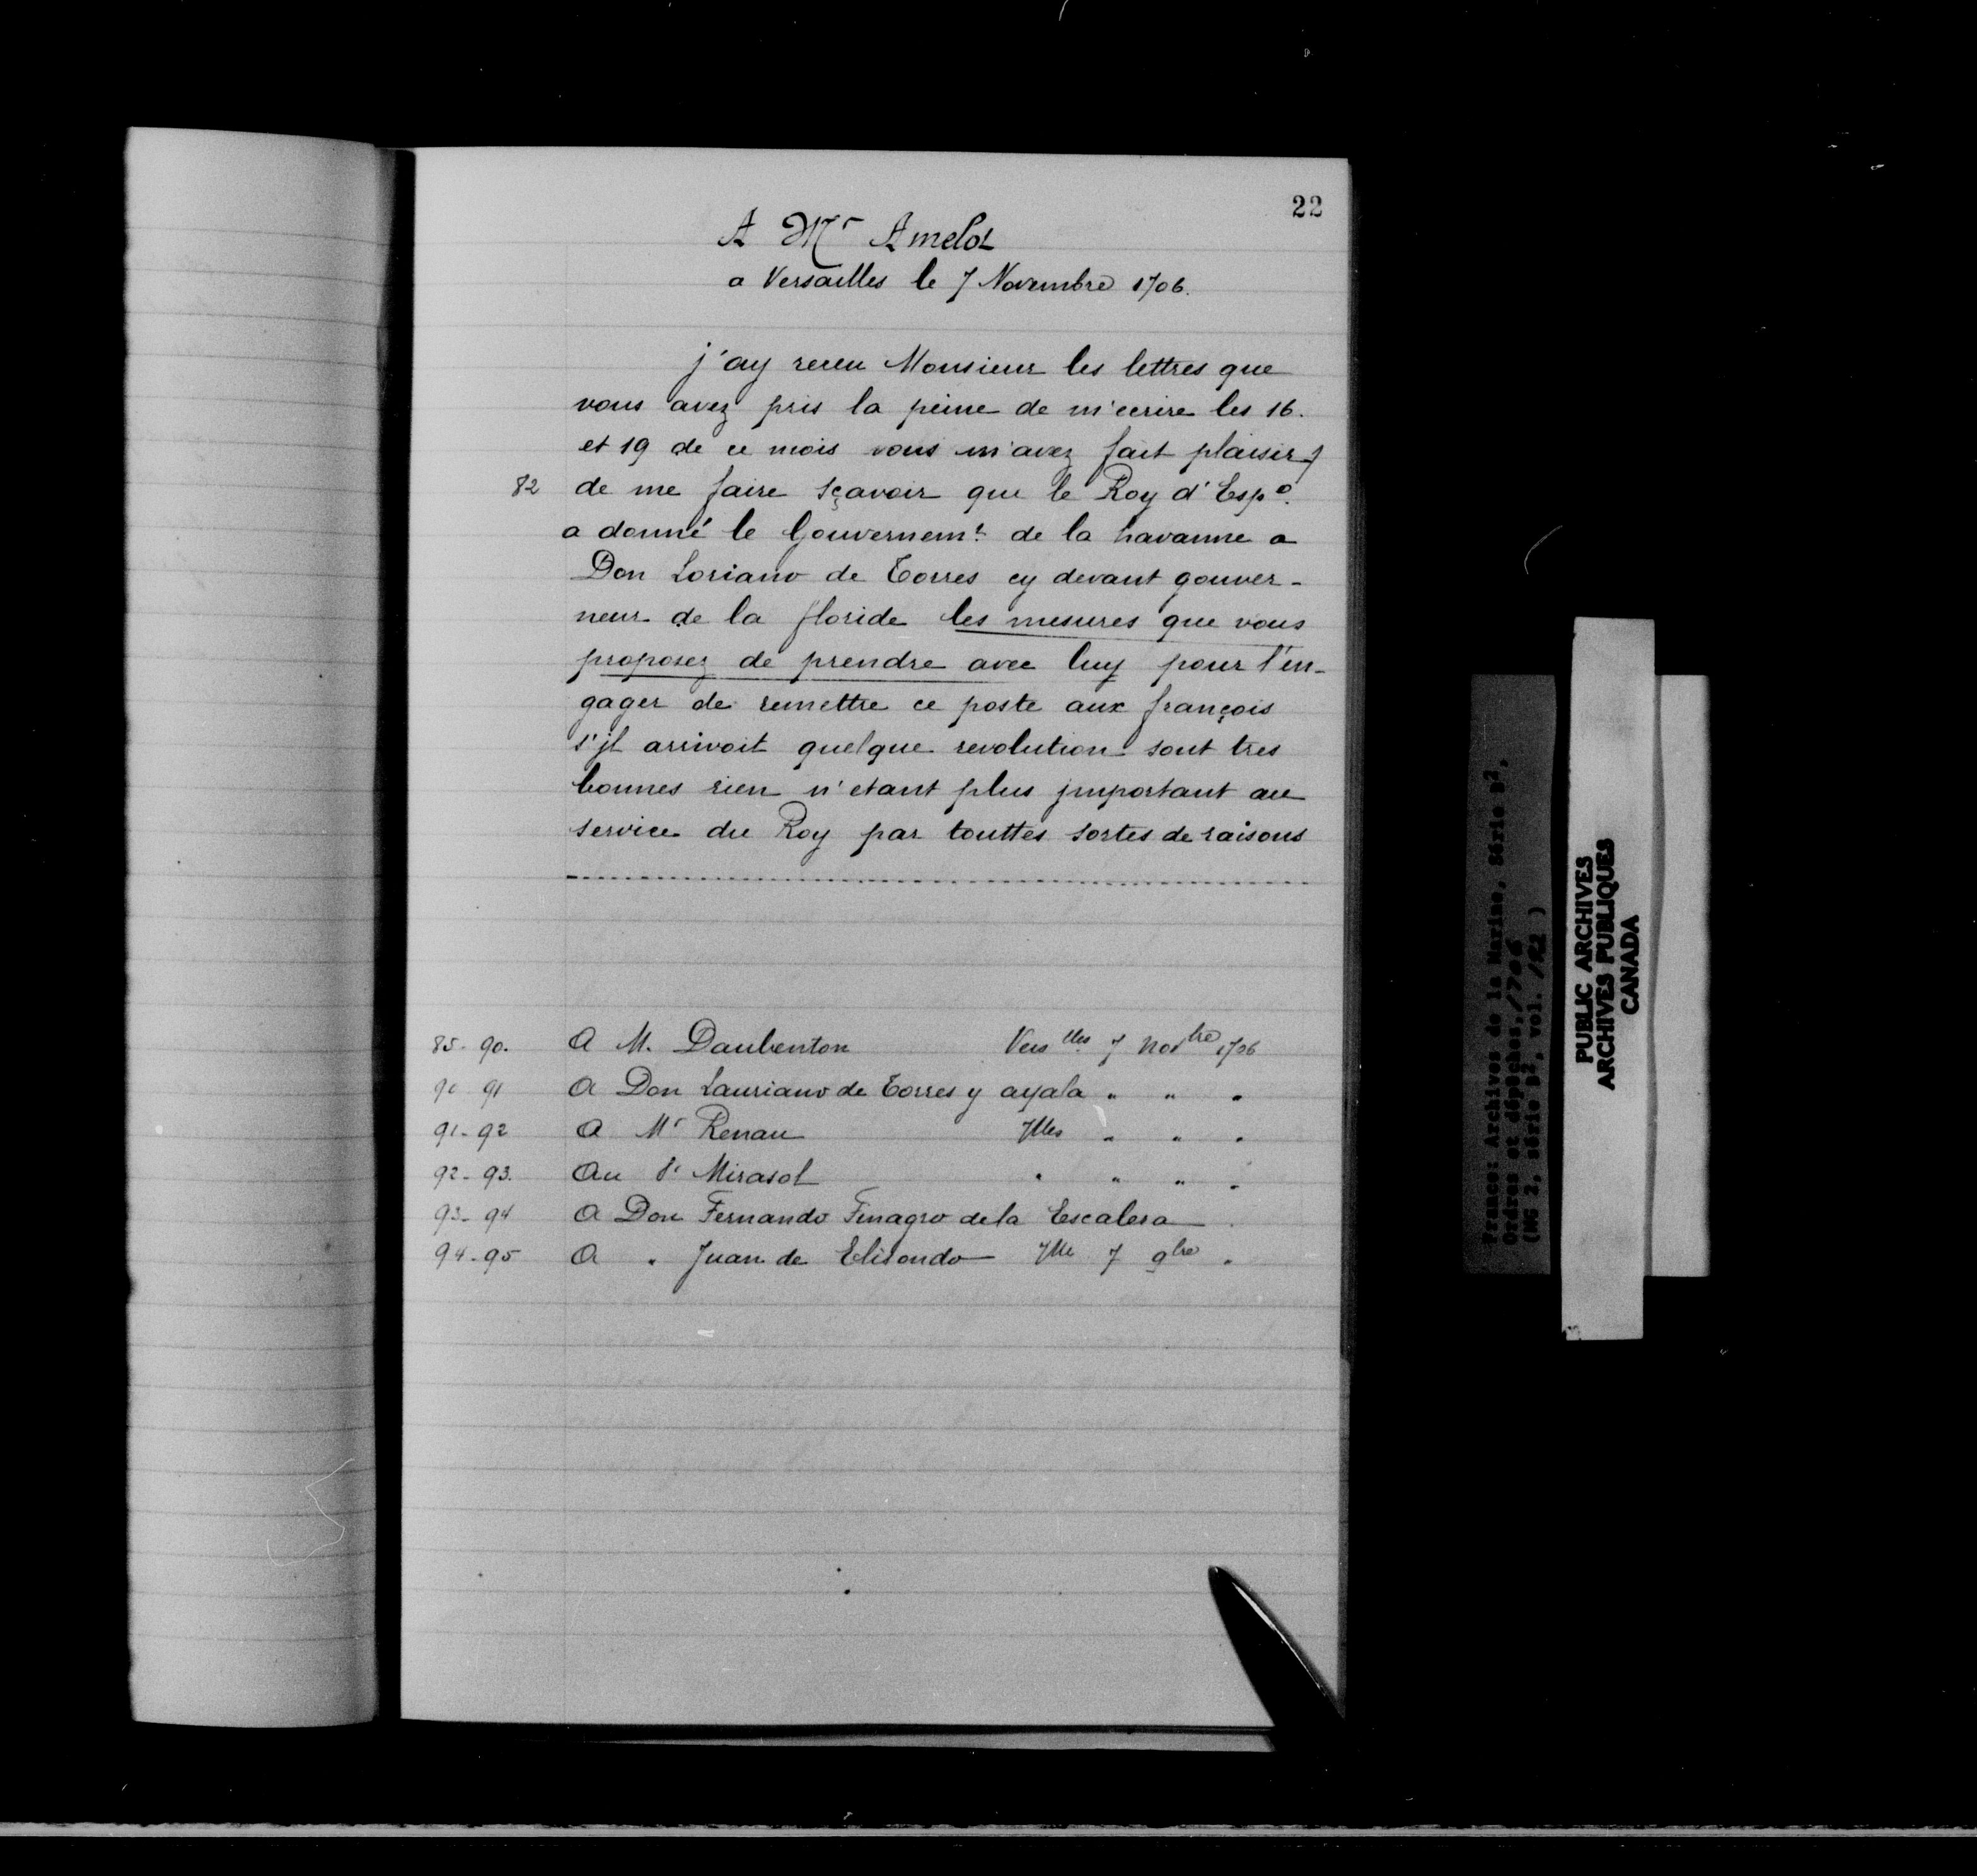 22
A Mr Amelot
a Versailles le 7 Novembre 1706.
j'ay receu Monsieur les lettres que
vous avez pris la peine de m'ecrire les 16.
et 19 de ce mois vous m'avez fait plaisir
82 de me faire sçavoir que le Roy d'Espe.
a donné le Gouvernemt. de la havanne a
Don Loriano de Torres cy devant gouver-
neur de la floride les mesures que vous
proposez de prendre avec luy pour l'en-
gager de remettre ce poste aux françois
s'jl arrivoit quelque revolution sont tres
bonnes rien n'etant plus jmportant au
service du Roy par touttes sortes de raisons
85-90. A M. Daubenton Verslles 7 Novbre 1706
90 91 A Don Lauriano de Torres y ayala " " "
91-92 A Mr Renau Vlles " " "
92-93. Au Sr Mirasol " " " "
93-94 A Don Fernando Finagro dela Escalera
94-95 A " Juan de Elisondo Vlle 7 9bre "
France: Archives de la Marine, Série B2,
Ordres et dépêches, 1706
(MG 2, série B2, vol. 192 )
PUBLIC ARCHIVES
ARCHIVES PUBLIQUES
CANADA